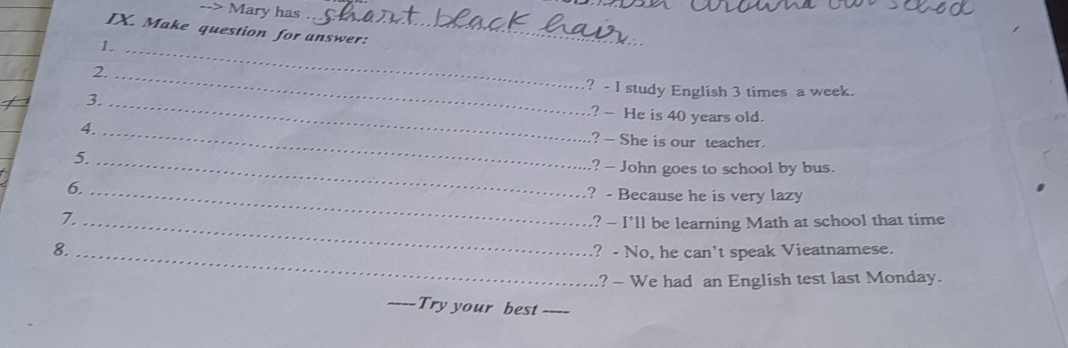 around our school
--> Mary has ...short black hair...
IX. Make question for answer:
1. ......? - I study English 3 times a week.
2. ......? – He is 40 years old.
3. ......? – She is our teacher.
4. ......? – John goes to school by bus.
5. ......? - Because he is very lazy
6. ......? – I'll be learning Math at school that time
7. ......? - No, he can't speak Vieatnamese.
8. ......? – We had an English test last Monday.
----Try your best ----